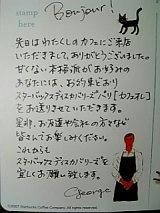 Bonjour!
stamp
here
先日はわたくしのカフェにご来店
いただきまして、ありがとうございました。
甘くない本格派がお好みの
あなたには、お約束どおり
スターバックス ディスカバリーズ パリ [カフェオレ]
をお送りさせていただきます。
是非、お友達や会社の方々など
皆さんでお楽しみください。
これからも
スターバックス ディスカバリーズを
宜しくお願い致します。
George
©2007 Starbucks Coffee Company. All rights reserved.